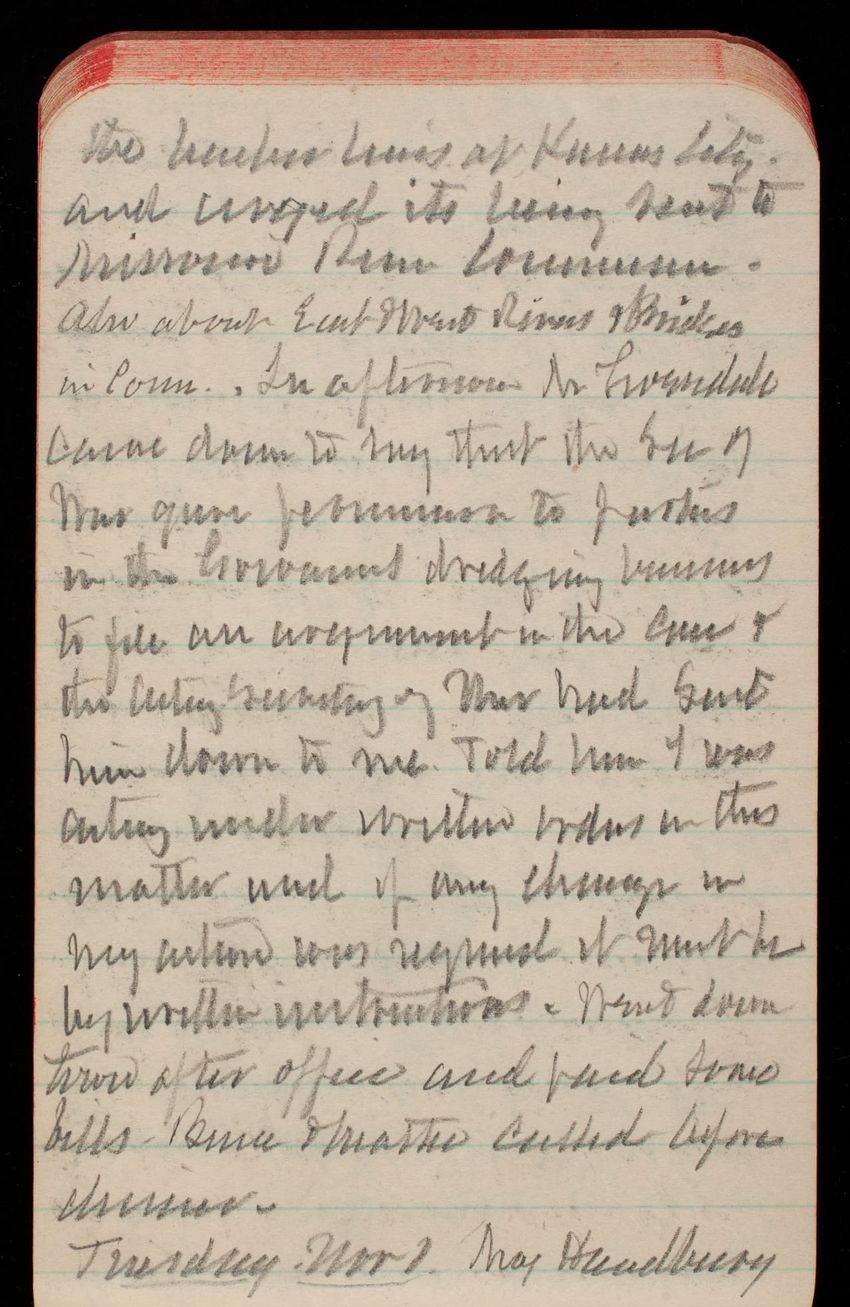 the harbor lines at Kansas City.
and urged its being sent to
Missouri River Commission.
Also about East & West Rivers & Bridges
in Conn. . In afternoon Mr
came down to say that the Sec of
War gave permission to parties
in the dredging business
to file an argument in the case &
the Acting Secretary of War had sent
him down to me. Told him I was
acting under written orders in this
matter and if any change in
my action was required it must be
by written instructions. Went down
town after office and paid some
bills. & Mattie called before
dinner.
Tuesday Nov Maj Handbury